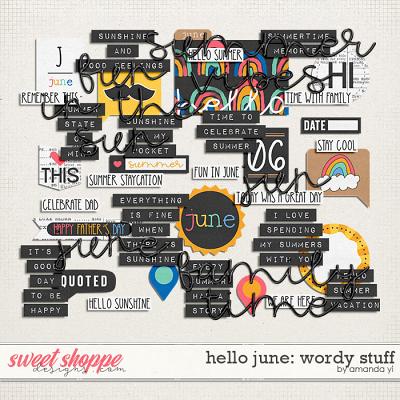 SUNSHINE
AND
GOOD FEELINGS
J
june
june
HELLO SUMMER
SUMMERTIME
MEMORIES
summer
fun
vibes
SH!
hello
REMEMBER THIS
TIME WITH FAMILY
in the
sun
SUMMER
STATE
MIND
SUNSHINE
MY
POCKET
TIME TO
CELEBRATE
SUMMER
06
DATE
STAY COOL
THIS
summer
SUMMER STAYCATION
FUN IN JUNE
fun
TODAY WAS A GREAT DAY
CELEBRATE DAD
HAPPY FATHER'S DAY
EVERYTHING
IS FINE
WHEN
SUNSHINE
june
I LOVE
SPENDING
MY SUMMERS
WITH YOU
june
family
time
IT'S
GOOD
DAY
TO BE
HAPPY
QUOTED
HELLO SUNSHINE
EVERY
SUMMER
HAS A
STORY
WE ARE HERE
HELLO
SUMMER
VACATION
sweet shoppe
designs.com
hello june: wordy stuff
by amanda yi